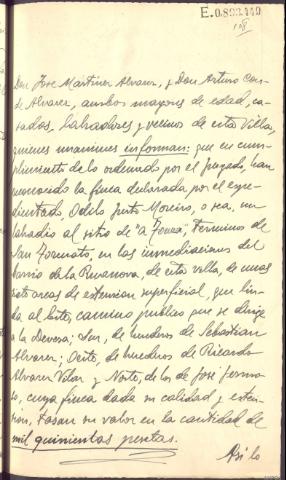 E.0.892.440
Don Jose Martinez Alvarez, y Don Arturo Con-
de Alvarez, ambos mayores de edad, ca-
sados, labradores y vecinos de esta Villa,
quienes unanimes informan: que en cum-
plimiento de lo ordenado por el Juzgado, han
reconocido la finca declarada por el expe-
dientado, Odilo Justo Moreiro, o sea, un
labradio al sitio de "a Fonza", terminos de
San, en las inmediaciones del
barrio de la Ruanova, de esta villa, de unas
siete areas de extension superficial, que lin-
da al Este, camino publico que se dirige
a la Devesa; Sur, de herederos de Sebastian
Alvarez; Oeste, de herederos de Ricardo
Alvarez Vilar y Norte, de los de José
cuya finca dada su calidad y exten-
sion, tasan su valor en la cantidad de
mil quinientas pesetas.
Asi lo